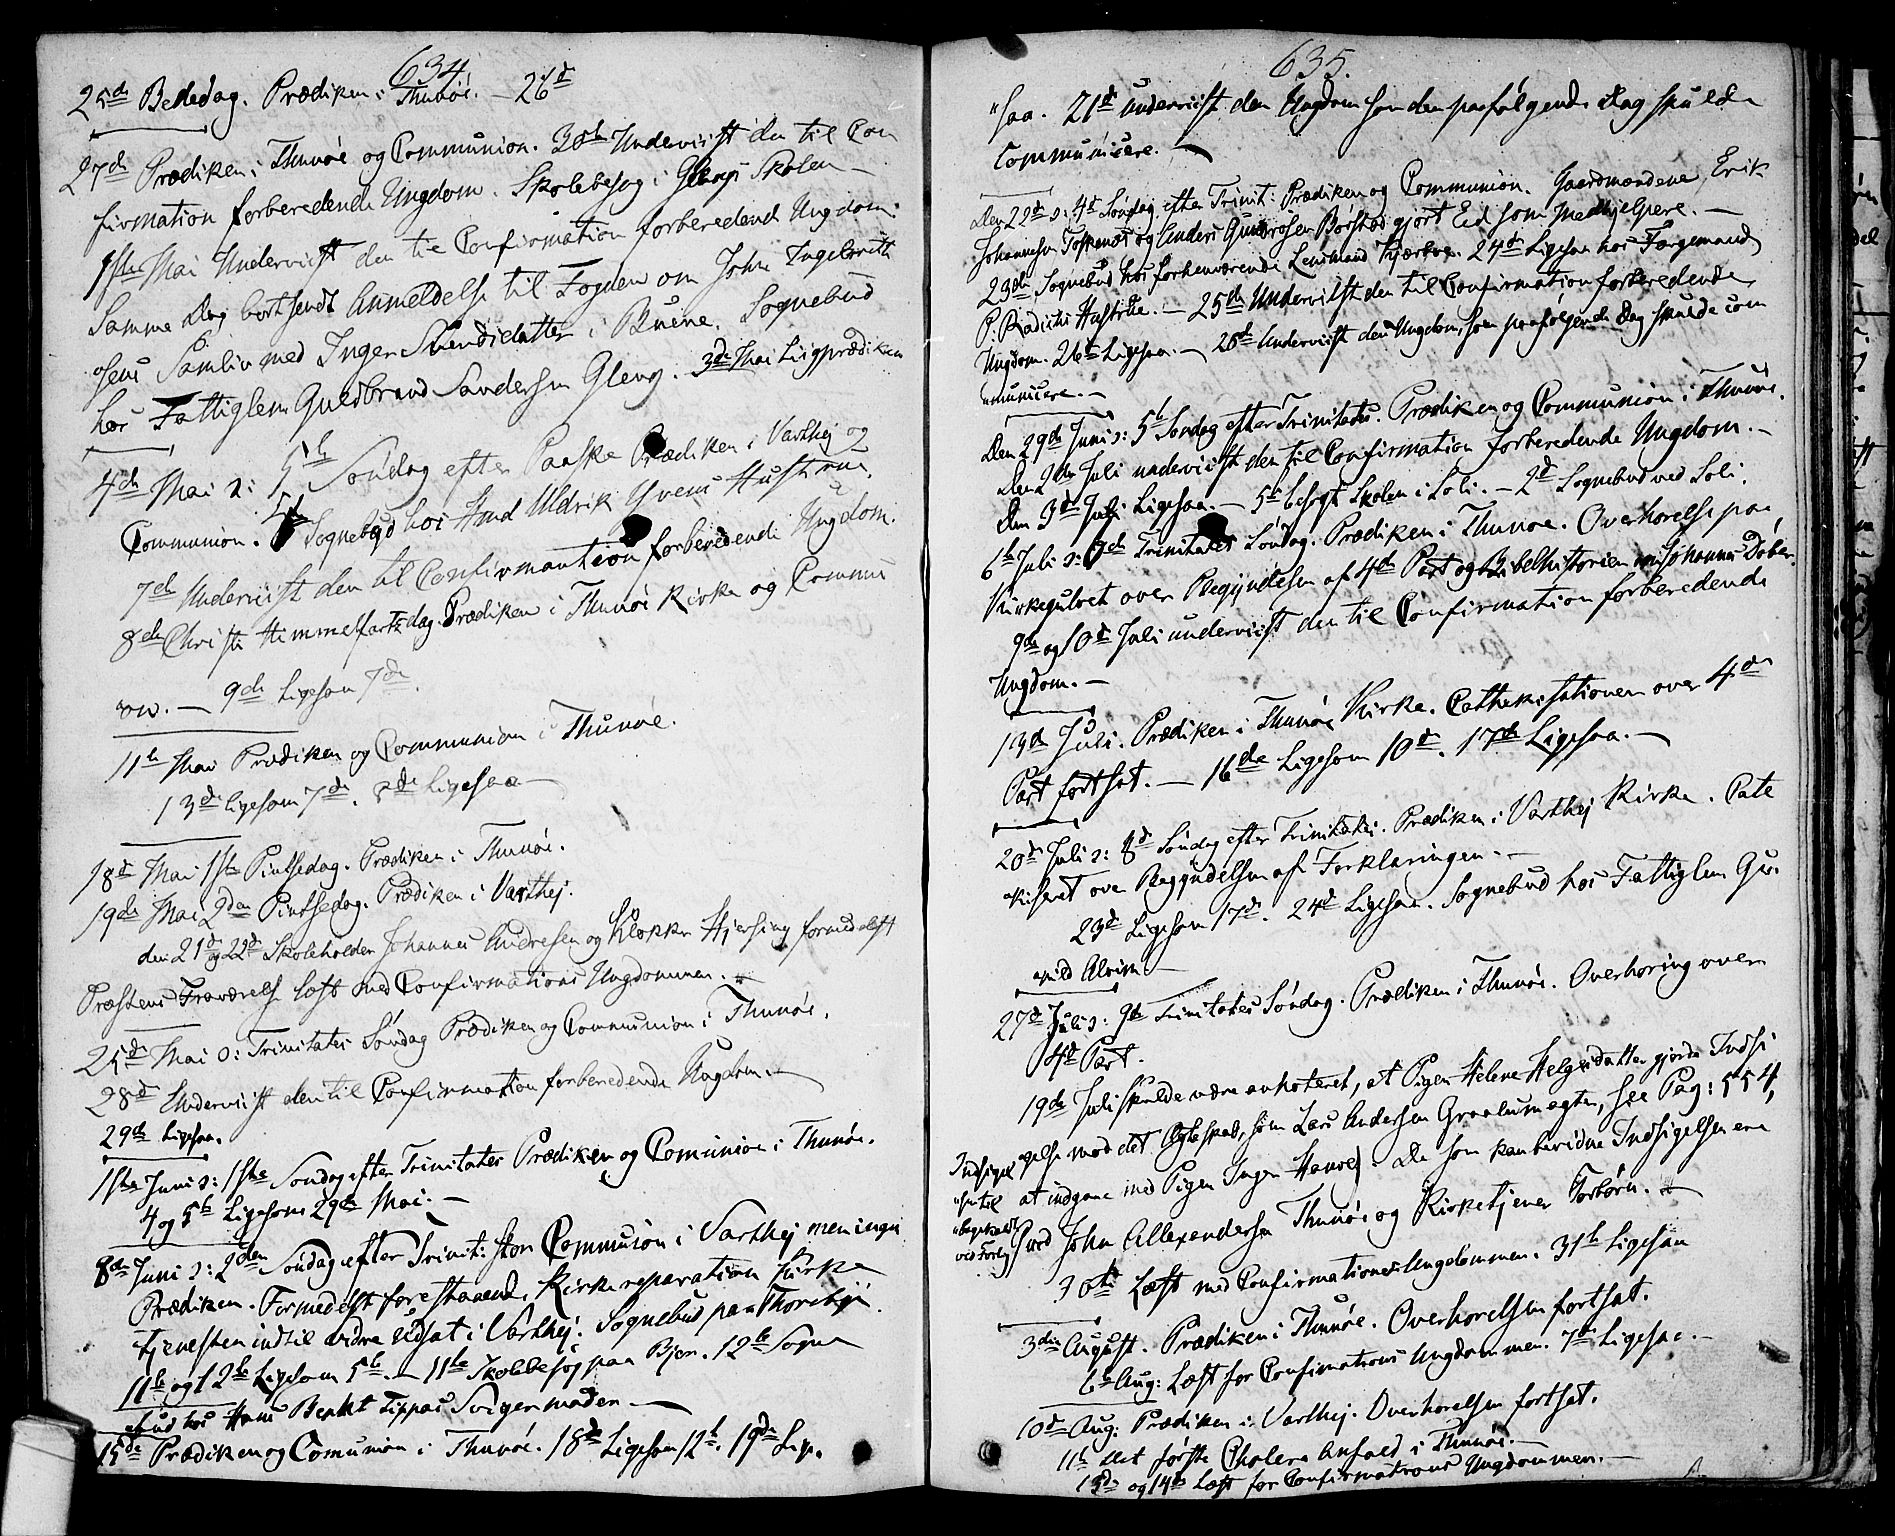 634.
25de Bededag. Prædiken i Thunøe. — 26de
27de Prædiken i Thunøe og Communion. 30te Underviist den til Con
firmation forberedende Ungdom. Skolebesøg i Glengs Skolen —
1ste Mai Underviist den til Confirmation forberedende Ungdom.
Samme Dag bortsendt Anmeldelse til Fogden om John Ingebreth
sens Samliv med Inger Svendsdatter i Buene. Sognebud
hos Fattiglem Guldbrand Sandersen Gleng. 3de Mai Liigprædiken
4de Mai ɔ: 5te Søndag efter Paaske Prædiken i Varthej og
Communion. 5te Sognebud hos Hmd Uldrik Yvens Hustrue.
7de Underviist den til Confirmantion forberedende Ungdom.
8de Christi Himmelfartsdag. Prædiken i Thunøe Kirke og Commu
on. — 9de Ligesom 7de.
11te Mai Prædiken og Communion i Thunøe.
13de ligesom 7de. 8de Ligesaa —
18de Mai 1ste Pintsedag. Prædiken i Thunøe.
19de Mai 2den Pintsedag. Prædiken i Varthej.
den 21de og 22de Skoleholder Johannes Andresen og Klokker Hjersing formedelst
Præstens Fraværelse læst med Confirmations Ungdommen.
25de Mai ɔ: Trinitatis Søndag Prædiken og Communion i Thunøe.
28de Underviist den til Confirmation forberedende Ungdom. —
29de Ligesaa.
1ste Juni ɔ: 1ste Søndag efter Trinitatis Prædiken og Comunion i Thunøe.
4 og 5te Ligesom 29de Mai. —
8de Juni ɔ: 2den Søndag efter Trinit: stor Communion i Varthej men ingen
Prædiken. Formedelst forestaaende Kirkereparation Kirke
tjenesten indtil videre udsat i Varthej. Sognebud paa Thorsbye.
11te og 12te Ligesom 5te. — 11te Skolebesøg paa Bjen. 12te Sogne
bud hos Hans Benht Tippas Svigermoder. —
15de Prædiken og Comunion i Thunøe. 18de Ligesom 12te. 19de Lig.
635.
saa. 21de Underviist den Ungdom som den paafølgende Dag skulde
Communicere. —
Den 22de ɔ: 4de Søndag efter Trinit: Prædiken og Communion. Gaardmændene Erik
Johannesen Toskenæs og Anders Gundrosen Borstad gjort Eed som Medhjelpere. —
23de Sognebud hos forhenværende Lensmand Kjærboe. 24de Ligesaa hos Færgemand
P. Radichs Hustrue. — 25de Underviist den til Confirmation forberedende
Ungdom. 26de Ligesaa. — 28de Underviist den Ungdom, som paafølgende Dag skulde com
municere. —
Den 29de Juni ɔ: 5te Søndag efter Trinitatis. Prædiken og Communion i Thunøe.
Den 2de Juli underviist den til Confirmation forberedende Ungdom. —
Den 3de Juli Ligesaa. — 5te besøgt Skolen i Soli. — 2de Sognebud ved Soli.
6te Juli ɔ: 6de Trinitatis Søndag. Prædiken i Thunøe. Overhørelse paa
Kirkegulvet over Begyndelsen af 4de Part og Bibelhistorien om Johannes Døber.
9de og 10de Juli underviist den til Confirmation forberedende
Ungdom. —
13de Juli. Prædiken i Thunøe Kirke. Cathekisationen over 4de
Part fortsat. — 16de Ligesom 10de. 17de Ligesaa. —
20de Juli ɔ: 8de Søndag efter Trinitatis. Prædiken i Varthej Kirke. Cate
kiseret over Begyndelsen af Forklaringen. —
23de Ligesom 17de. 24de Ligesaa. Sognebud hos Fattiglem Gu.
nild Alvim —
27de Juli ɔ: 9de Trinitatis Søndag. Prædiken i Thunøe. Overhøring over
4de Part.
19de Juli skulde være anhoteret, at Pigen Helene Helgesdatter gjorde Indsi
gelse mod det Ægteskab, som Lars Andersen Graalumægter, see Pag: 554,
Indsigel
sen til
bagekaldt
ved Forlig
at indgaae med Pigen Inger Hansd. De som kan bevidne Indsigelsen ere
Pred John Allexandersen Thunøe og Kirketjener Torbørn. —
30te Læst med Confirmations Ungdommen. 31te Ligesaa
3die August. Prædiken i Thunøe. Overhørelsen fortsat.
6te Aug: Læst for Confirmations Ungdommen. 7de Ligesaa. —
10de Aug: Prædiken i Varthej. Overhørelsen fortsat.
11te Det første Cholera Anfald i Thunøe. —
13de og 14de Læst for Confirmations Ungdommen. —